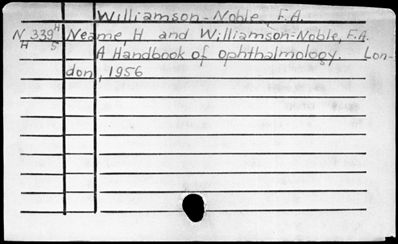 Williamson-Noble, F.A.
N 339 H Neame H and Williamson-Noble, F.A.
H 5 A Handbook of ophthalmology. Lon-
don, 1956